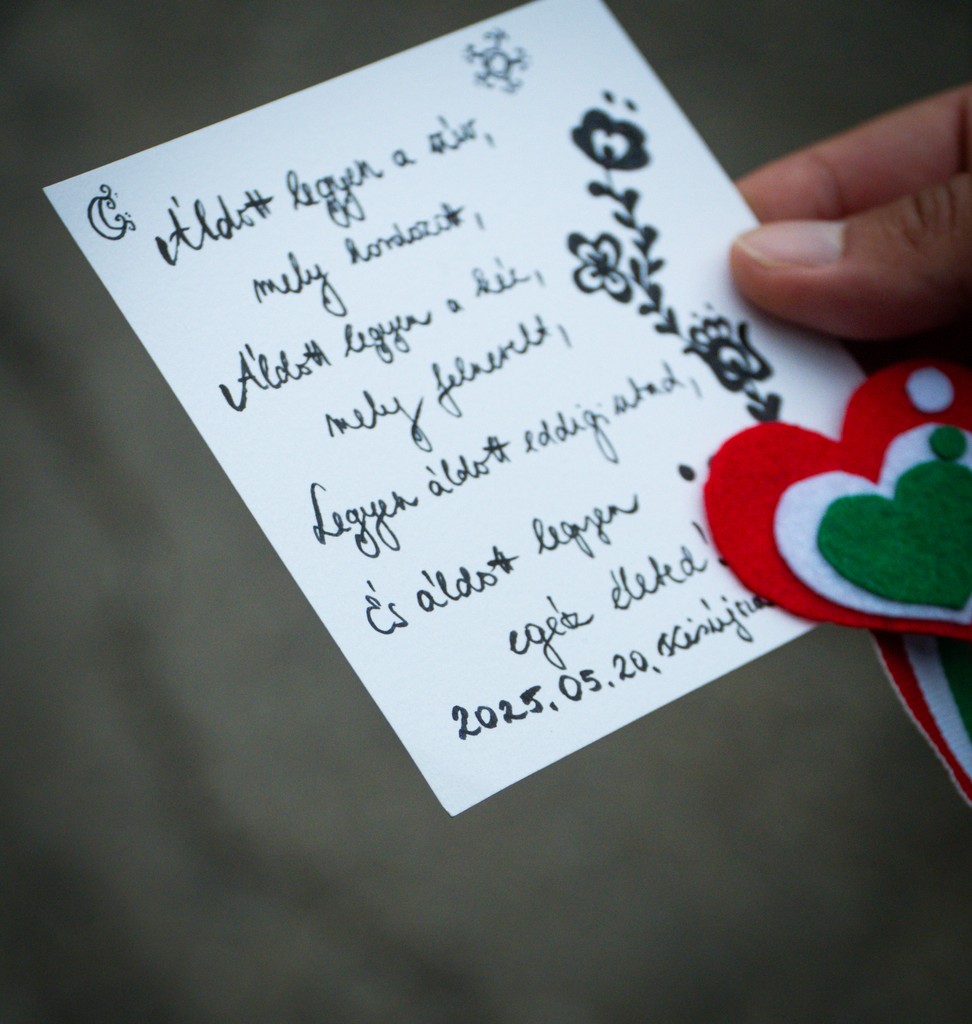 Áldott legyen a szív,
mely hordozott,
Áldott legyen a kéz,
mely felnevelt,
Legyen áldott eddigi utad,
És áldott legyen
egész életed!
2025.05.20.